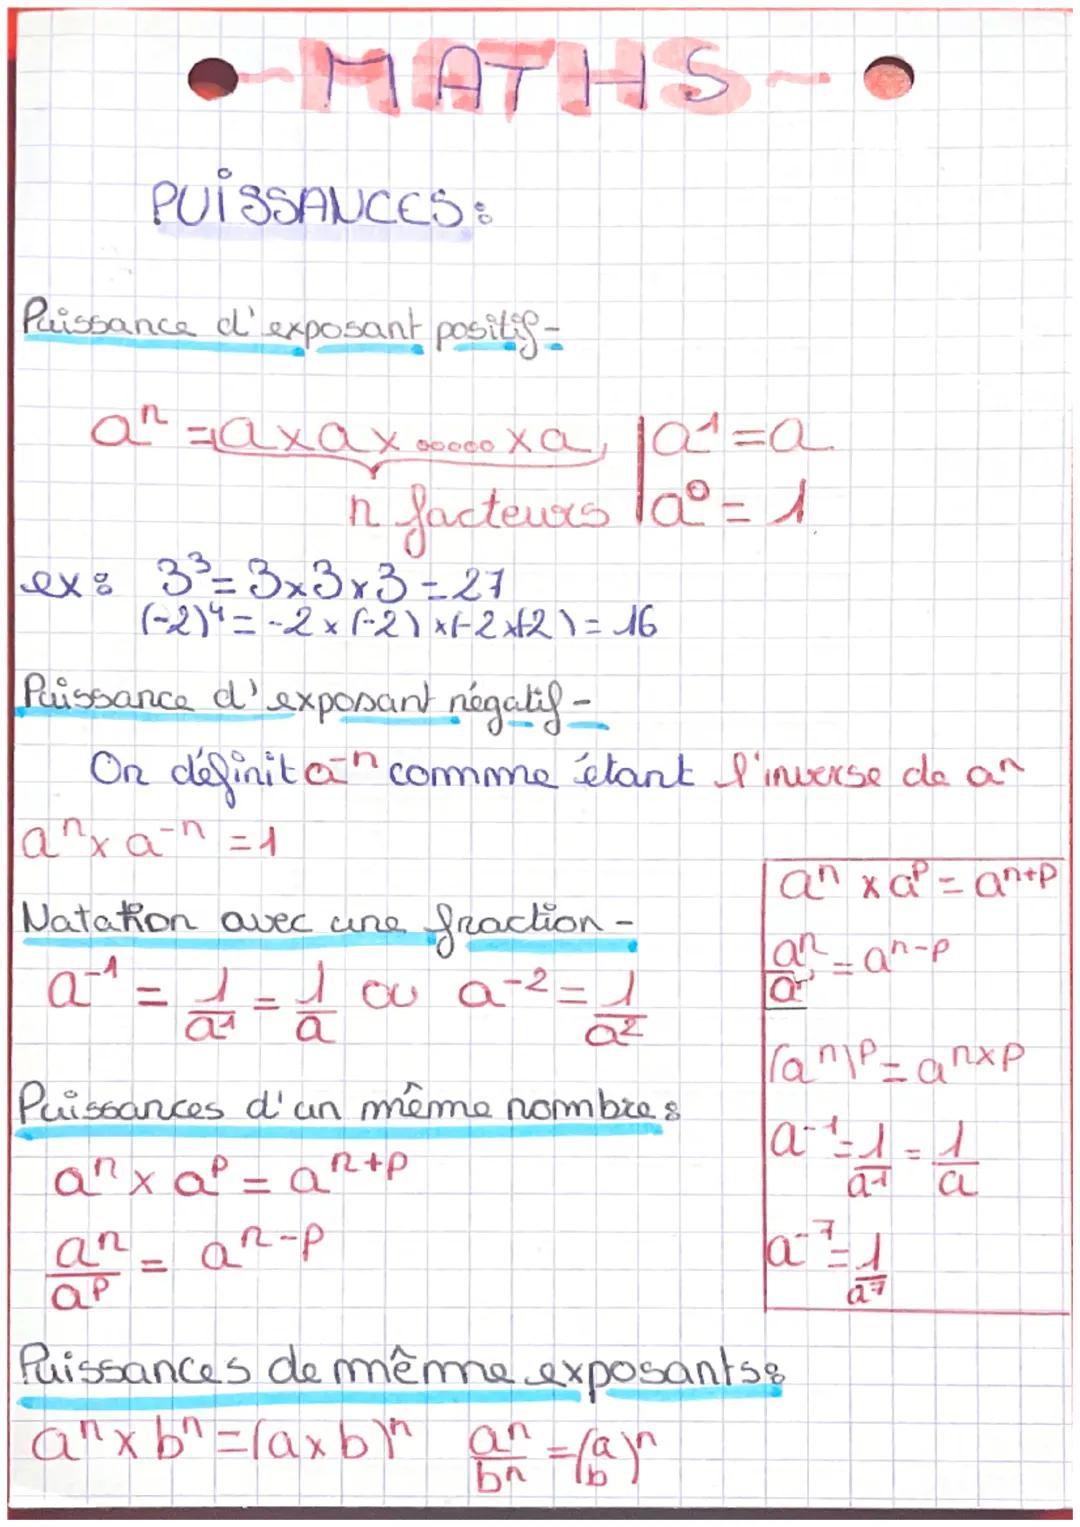 MATHS
PUISSANCES:
Puissance d'exposant positif-
aⁿ = a×a×.....×a, | a¹ = a
n facteurs | a⁰ = 1
ex: 3³ = 3×3×3 = 27
(-2)⁴ = -2 × (-2) × (-2 × (-2) = 16
Puissance d'exposant négatif -
On définit a⁻ⁿ comme étant l'inverse de aⁿ
aⁿ × a⁻ⁿ = 1
Notation avec une fraction -
a⁻¹ = 1/a¹ = 1/a ou a⁻² = 1/a²
Puissances d'un même nombre:
aⁿ × aᵖ = aⁿ⁺ᵖ
aⁿ/aᵖ = aⁿ⁻ᵖ
aⁿ × aᵖ = aⁿ⁺ᵖ
aⁿ/aᵖ = aⁿ⁻ᵖ
(aⁿ)ᵖ = aⁿˣᵖ
a⁻¹ = 1/a¹ = 1/a
a⁻⁷ = 1/a⁷
Puissances de même exposants:
aⁿ × bⁿ = (a×b)ⁿ aⁿ/bⁿ = (a/b)ⁿ